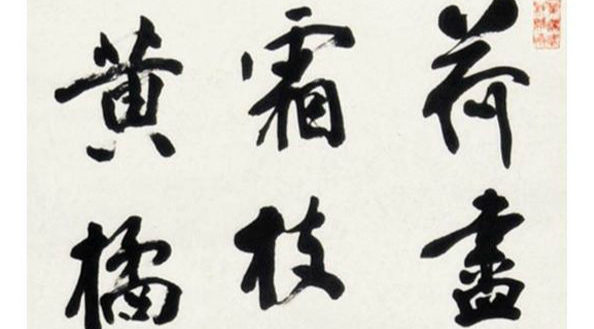 荷盡
霜枝
黃橘